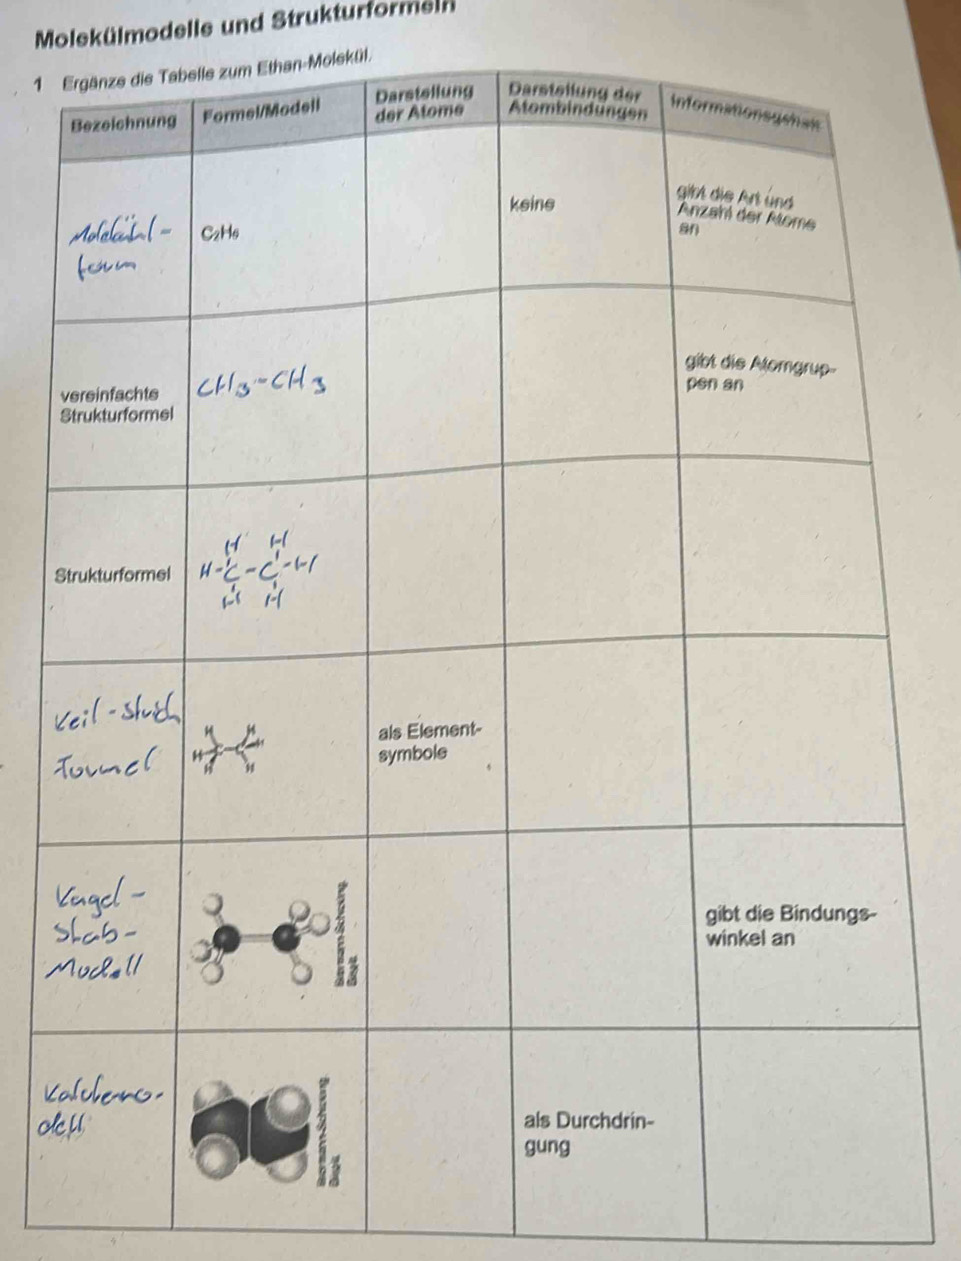 Molekülmodelle und Strukturformeln
1 Ergänze die Tabelle zum Ethan-Molekül.
Bezeichnung
Formel/Modell
Darstellung
der Atome
Darstellung der
Atombindungen
Informationsgehalt
Molekül-
form
C₂H₆
keine
gibt die Art und
Anzahl der Atome
an
vereinfachte
Strukturformel
CH₃-CH₃
gibt die Atomgrup-
pen an
Strukturformel
H H
H-C-C-H
H H
Keil-Strich
Formel
H H
H C-C H
H H
als Element-
symbole
Kugel-
Stab-
Modell
gibt die Bindungs-
winkel an
als Durchdrin-
gung